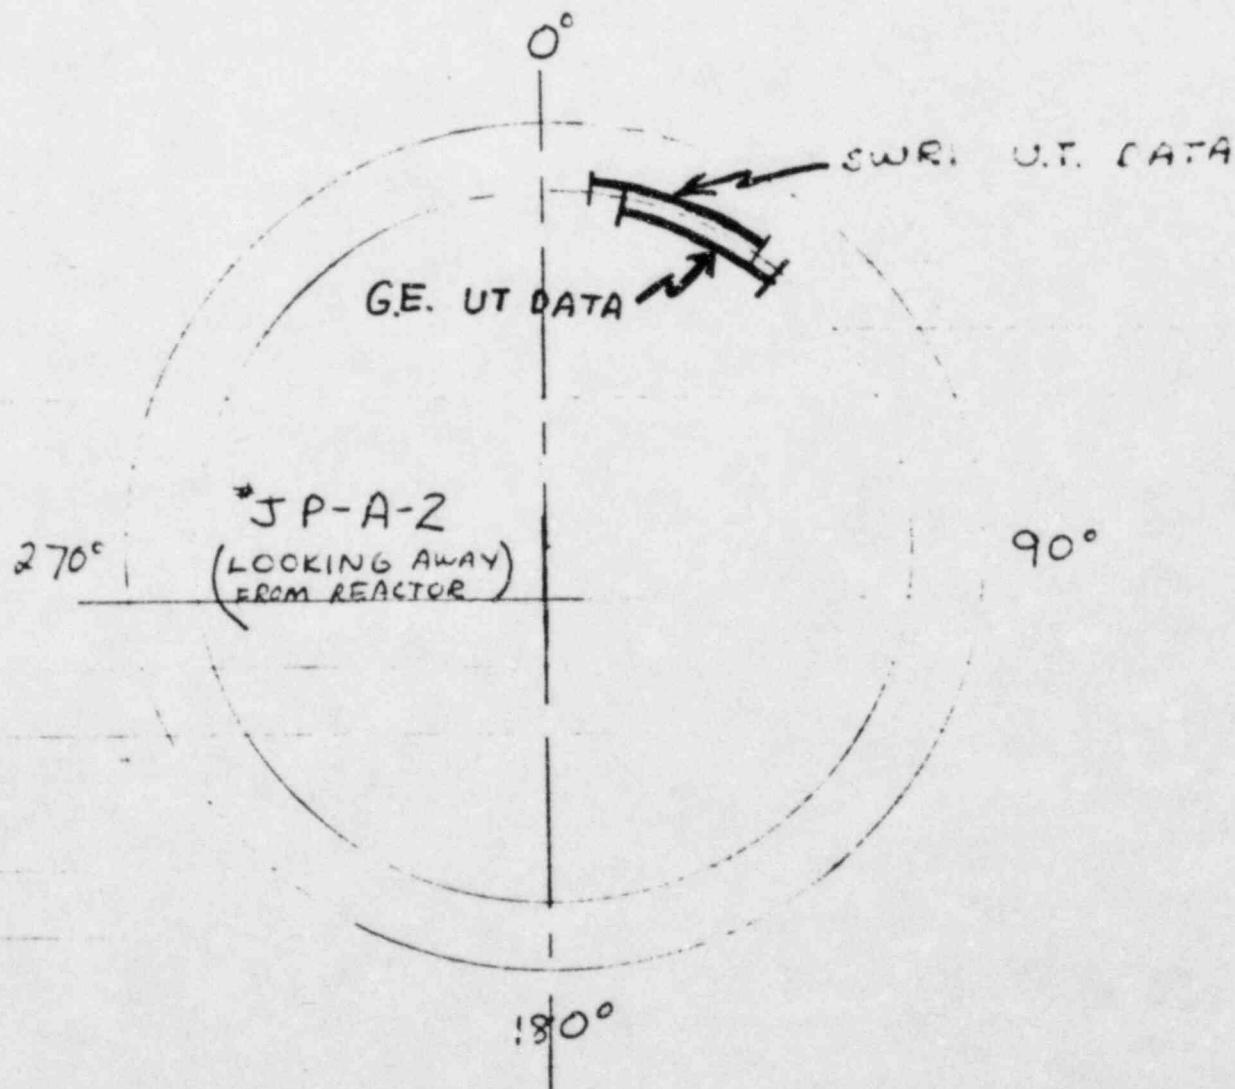 0°
SWRI U.T. DATA
G.E. UT DATA
#JP-A-2
(LOOKING AWAY
FROM REACTOR)
270°
90°
180°